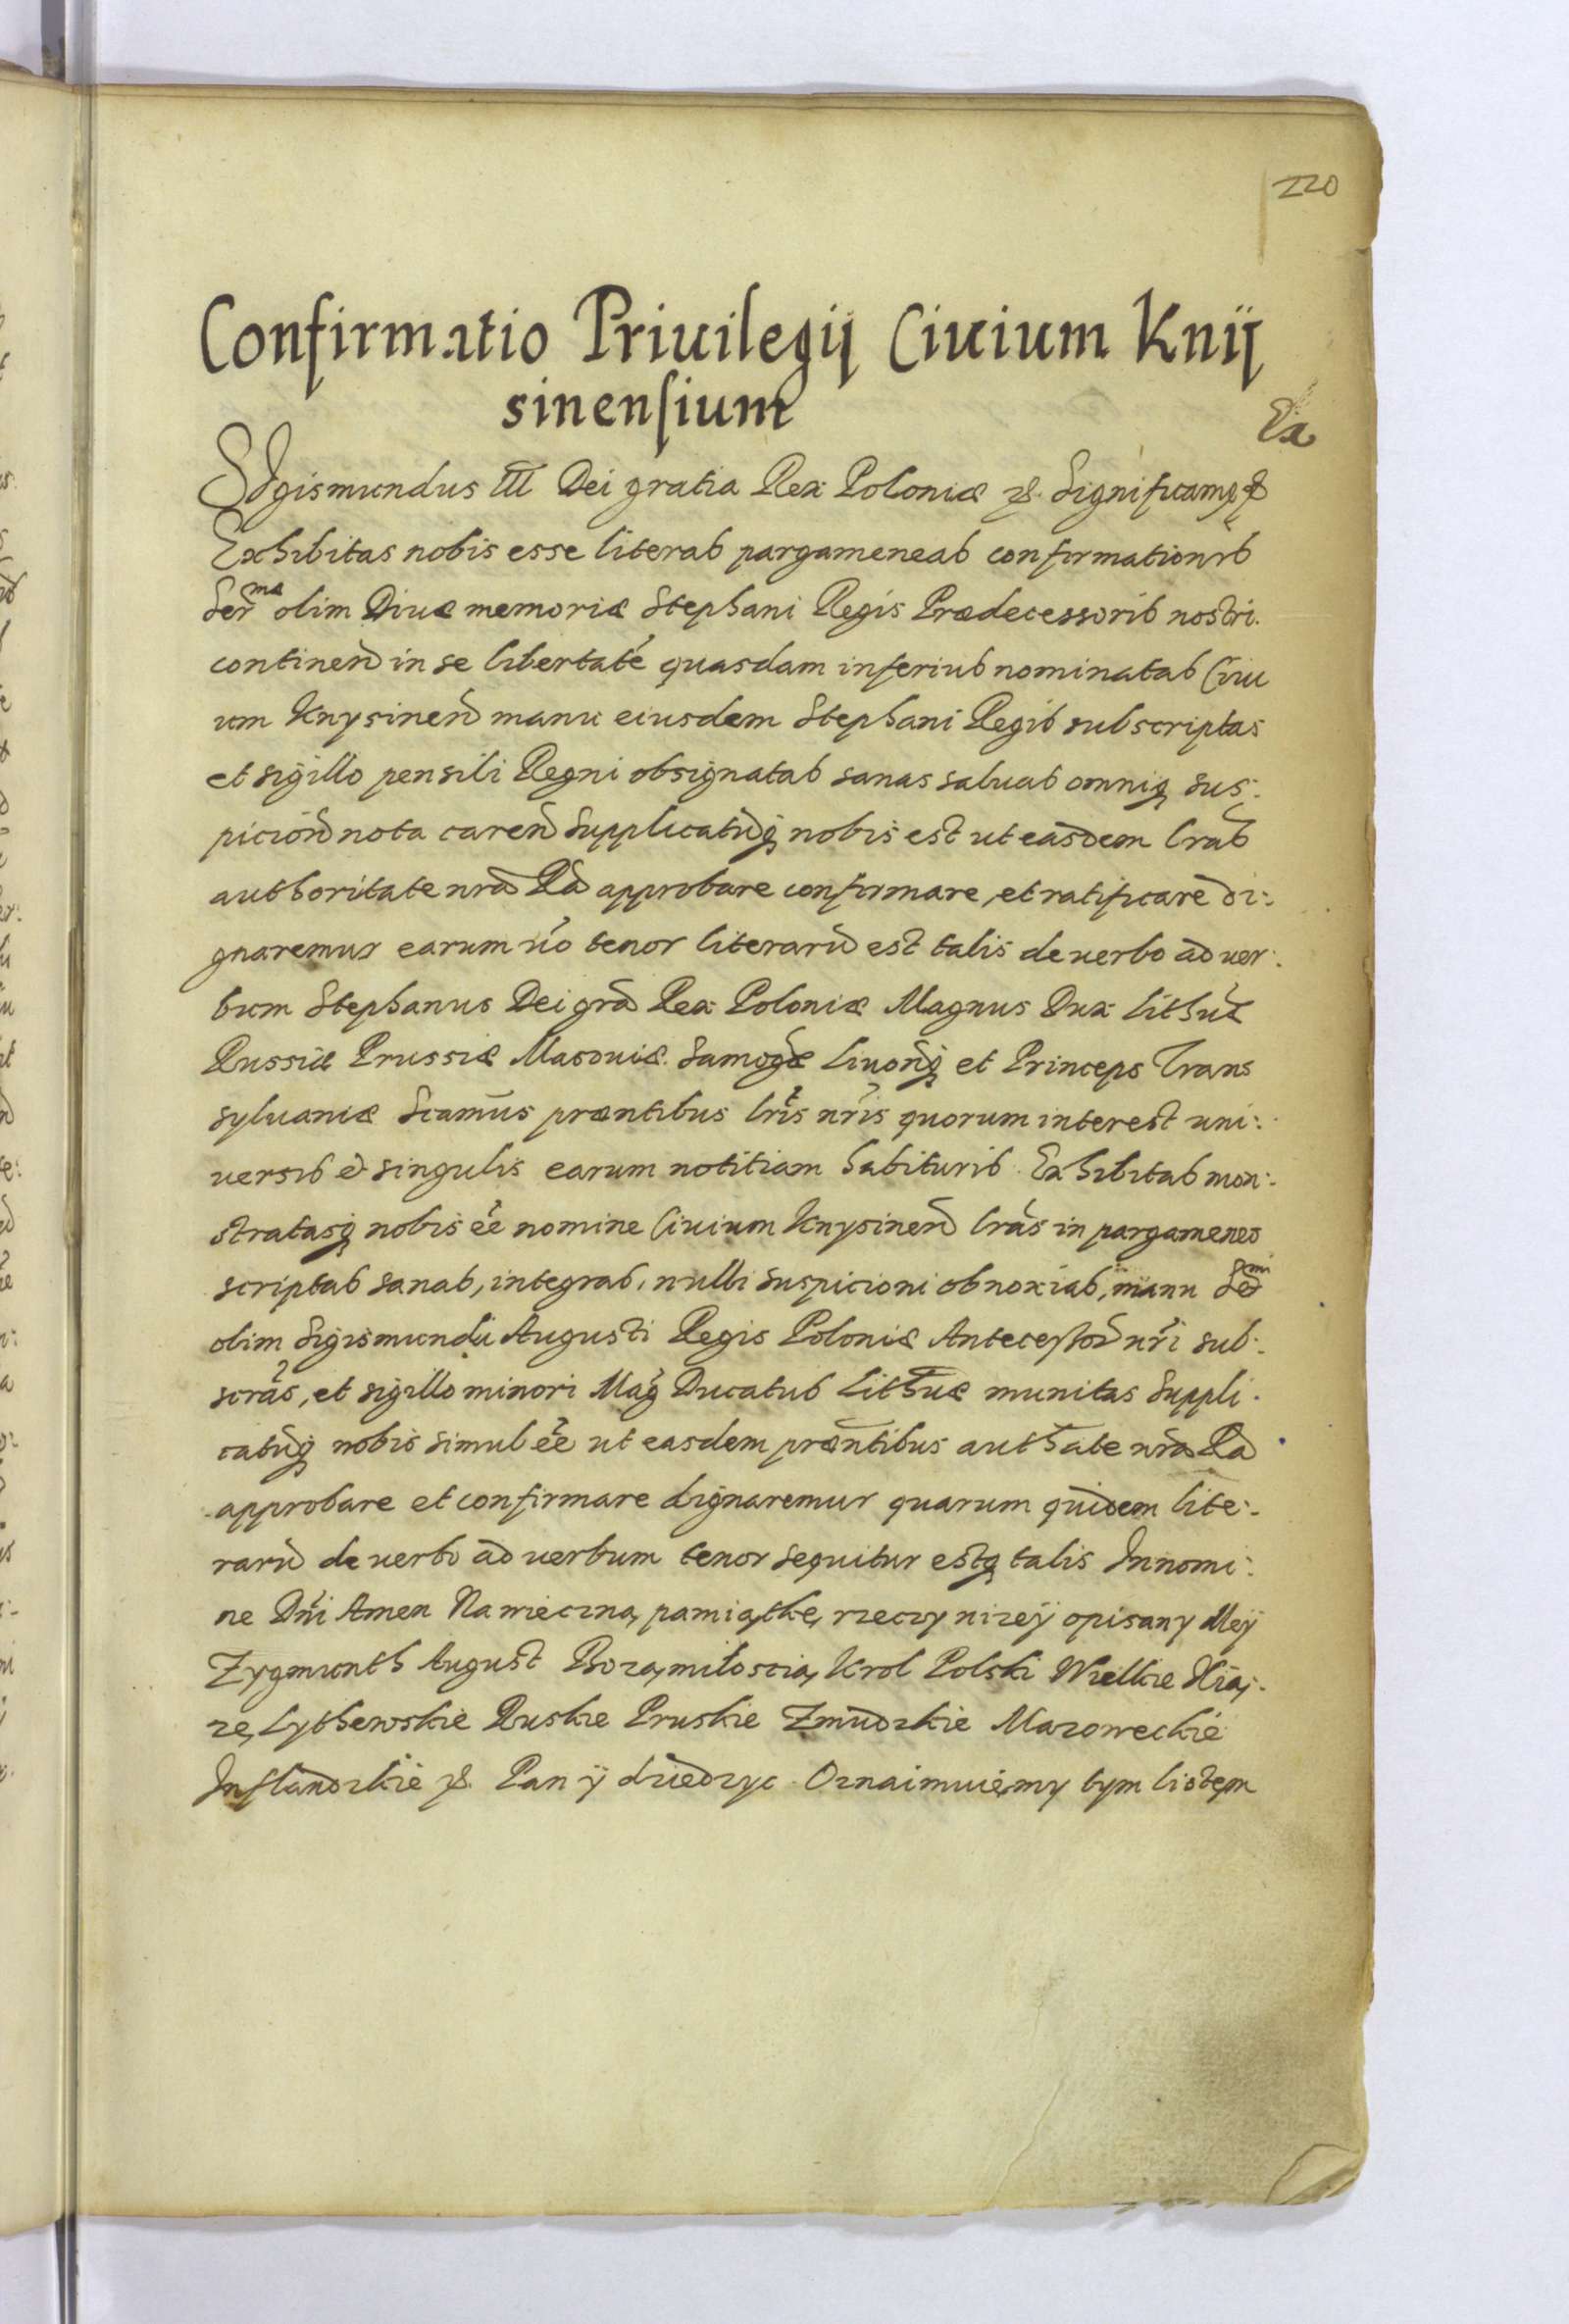 220
Confirmatio Priuilegij Ciuium Knij
sinensium
Ex
Sigismundus III Dei gratia Rex Poloniæ &. Significamq
Exhibitas nobis esse literas pargameneas confirmationis
Serᵐᵉ olim Diuæ memoriæ Stephani Regis Prædecessoris nostri.
continen̄ in se libertatē quasdam inferius nominatas Ciui
um Knysinen̄ manu eiusdem Stephani Regis subscriptas
et sigillo pensili Regni obsignatas sanas saluas omniq sus:
picion̄ nota caren̄ Supplicatūq nobis est ut easdem lras̄
authoritate nrā Rā approbare confirmare, et ratificare di:
gnaremur earum ūo tenor literarū est talis de uerbo ad uer:
bum Stephanus Dei grā Rex Poloniæ Magnus Dux Lithuæ
Russiæ Prussiæ Masouiæ Samogæ Liuoniq et Princeps Trans
syluaniæ Scamūs præntibus lris̄ nris̄ quorum interest uni:
uersis & singulis earum notitiam habituris. Exhibitas mon:
stratasq nobis ēē nomine Ciuium Knysinen̄ lrās in pargameneo
scriptas sanas, integras, nulli suspicioni obnoxias, manu Serᵐⁱ
olim Sigismundi Augusti Regis Poloniæ Antecessor̄ nr̄i sub:
scrās, et sigillo minori Maḡ Ducatus Lithuæ munitas Suppli:
catūq nobis simul ēē ut easdem præntibus authate nrā Rā
approbare et confirmare dignaremur quarum quidem lite:
rarū de uerbo ad uerbum tenor sequitur estq talis In nomi:
ne Dn̄i Amen Na wieczną pamiątkę rzeczy nizeÿ opisany Meÿ
Zygmunth August Bozą miłoscią Krol Polski Wielkie Xią:
zę Lythewskie Ruskie Pruskie Zmudzkie Mazoweckie
Inflandzkie &. Pan ÿ dziedzyc Oznaimuięmy tym listem